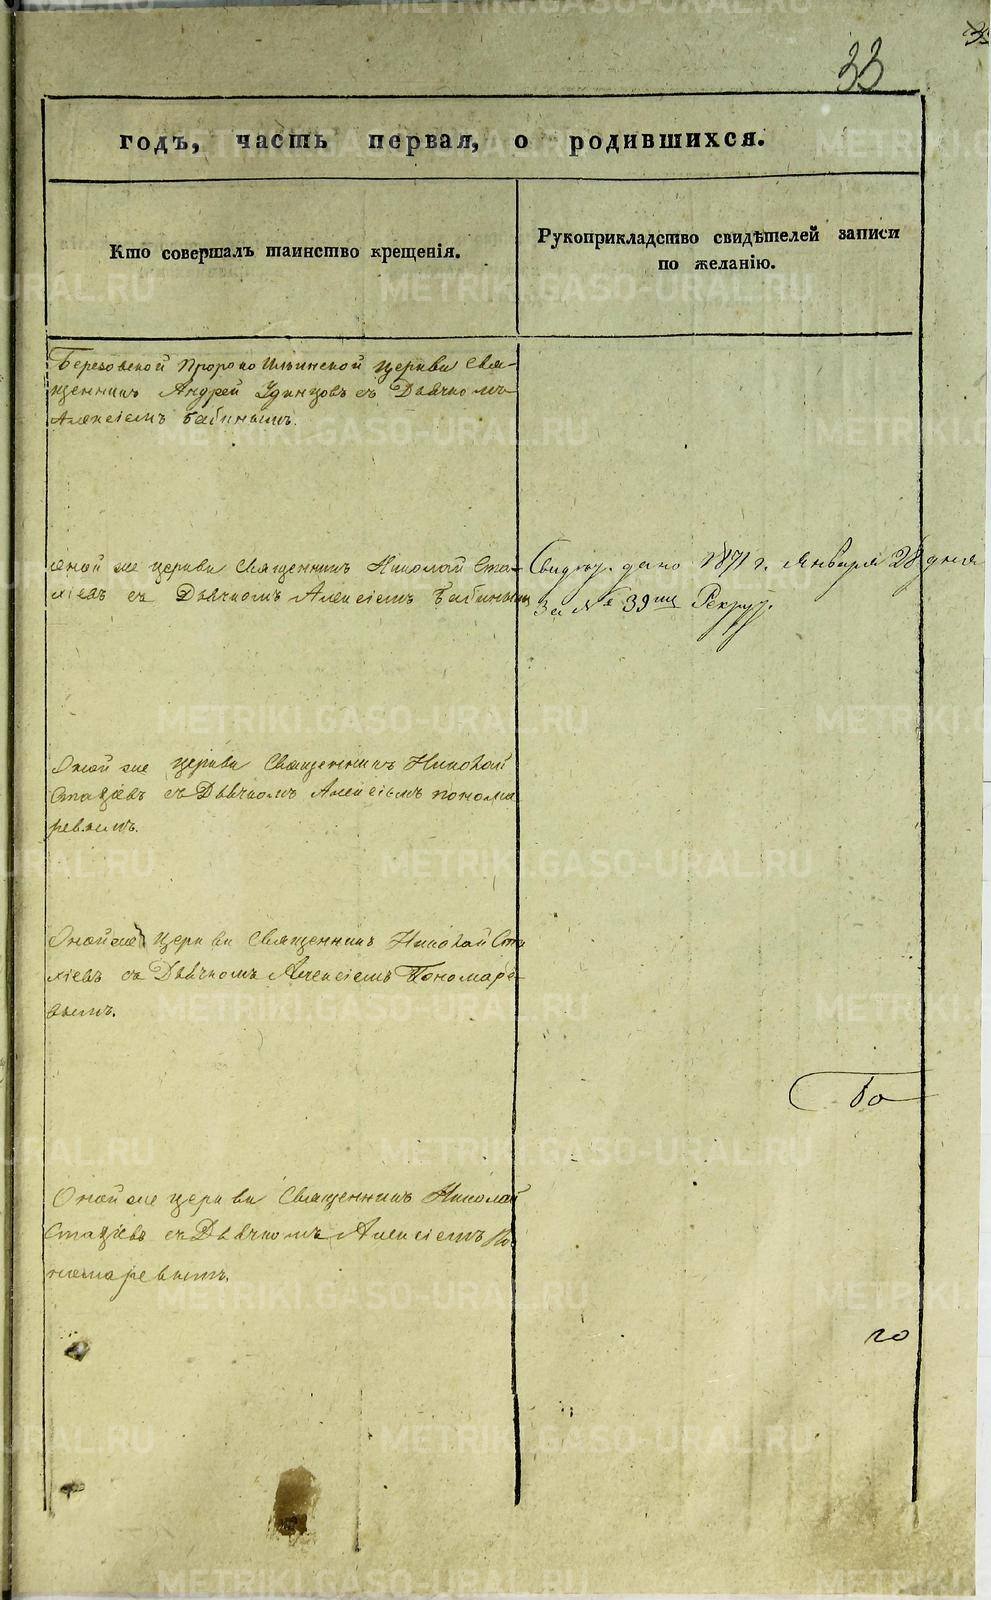 33
годъ, часть первая, о родившихся.
Кто совершалъ таинство крещенія.
Рукоприкладство свидѣтелей записи
по желанію.
Березовской Пророко Ильинской церкви Свя-
щенникъ Андрей Удинцовъ съ Дьячкомъ
Алексіемъ Бабинымъ.
оной же церкви Священникъ Николай Ста-
хіевъ съ Дьячкомъ Алексіемъ Бабинымъ
Свидѣт. дано 1871 г. Января 28 дня
За № 39
Оной же церкви Священникъ Николай
Стахіевъ съ Дьячкомъ Алексіемъ Понома
ревымъ.
Оной же церкви Священникъ Николай Ста
хіевъ съ Дьячкомъ Алексіемъ Пономаре-
вымъ.
По
Оной же церкви Священникъ Николай
Стахіевъ съ Дьячкомъ Алексіемъ По-
номаревымъ.
го
METRIKI.GASO-URAL.RU